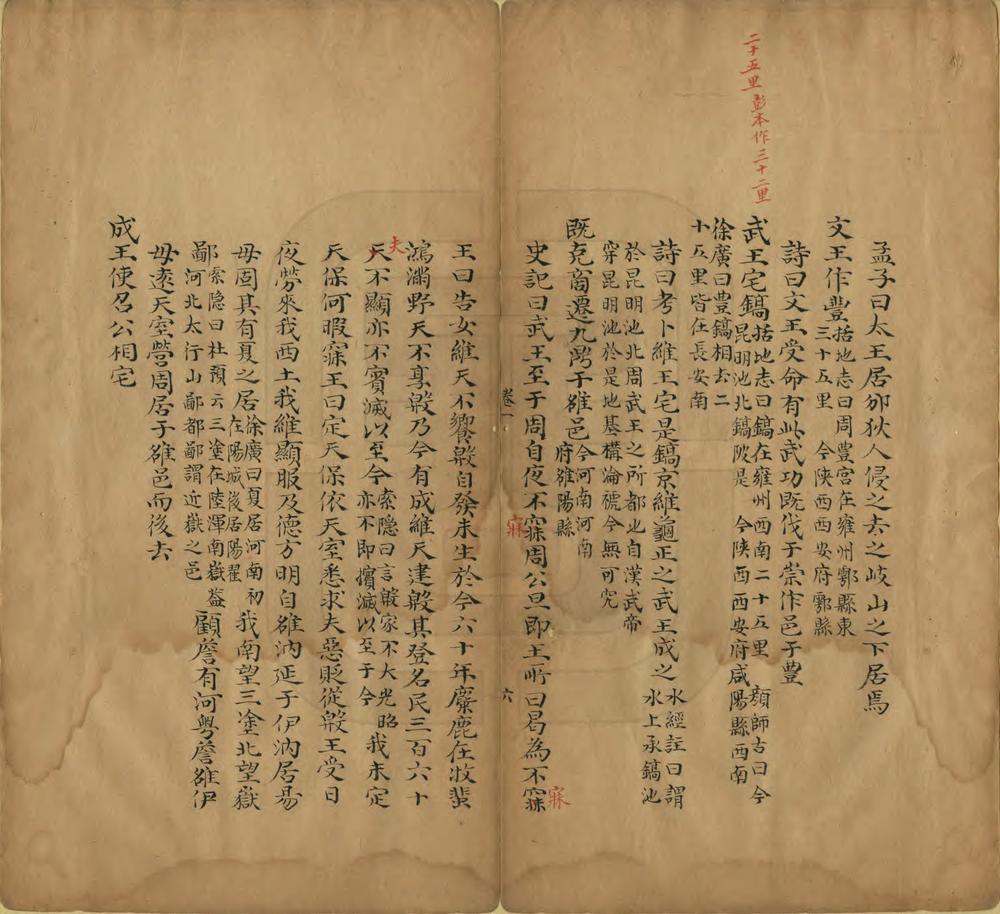 二十五里彭本作三十二里
孟子曰太王居邠狄人侵之去之岐山之下居焉
文王作豐括地志曰周豐宮在雍州鄠縣東三十五里 今陜西西安府鄠縣
詩曰文王受命有此武功既伐于崇作邑于豐
武王宅鎬括地志曰鎬在雍州西南二十五里 顏師古曰今昆明池北鎬陂是 今陜西西安府咸陽縣西南
徐廣曰豐鎬相去二十五里皆在長安南
詩曰考卜維王宅是鎬京維龜正之武王成之水經註曰謂水上承鎬池
於昆明池北周武王之所都也自漢武帝穿昆明池於是地基構淪褫今無可究
既克商遷九鼎于雒邑今河南河南府雒陽縣
史記曰武王至于周自夜不寐周公旦即王所曰曷為不寐
寐
寐
卷一
六
王曰告女維天不饗殷自發未生於今六十年麋鹿在牧蜚
鴻滿野天不享殷乃今有成維天建殷其登名民三百六十
夫
天不顯亦不賓滅以至今索隐曰言殷家不大光昭亦不即擯滅以至于今我未定
天保何暇寐王曰定天保依天室悉求夫惡貶從殷王受日
夜勞來我西土我維顯服及德方明自雒汭延于伊汭居昜
毋固其有夏之居徐廣曰夏居河南初在陽城後居陽翟我南望三塗北望嶽
鄙索隐曰杜預云三塗在陸渾南嶽葢鄙河北太行山鄙都鄙謂近嶽之邑顧詹有河粵詹雒伊
毋遠天室營周居于雒邑而後去
成王使召公相宅